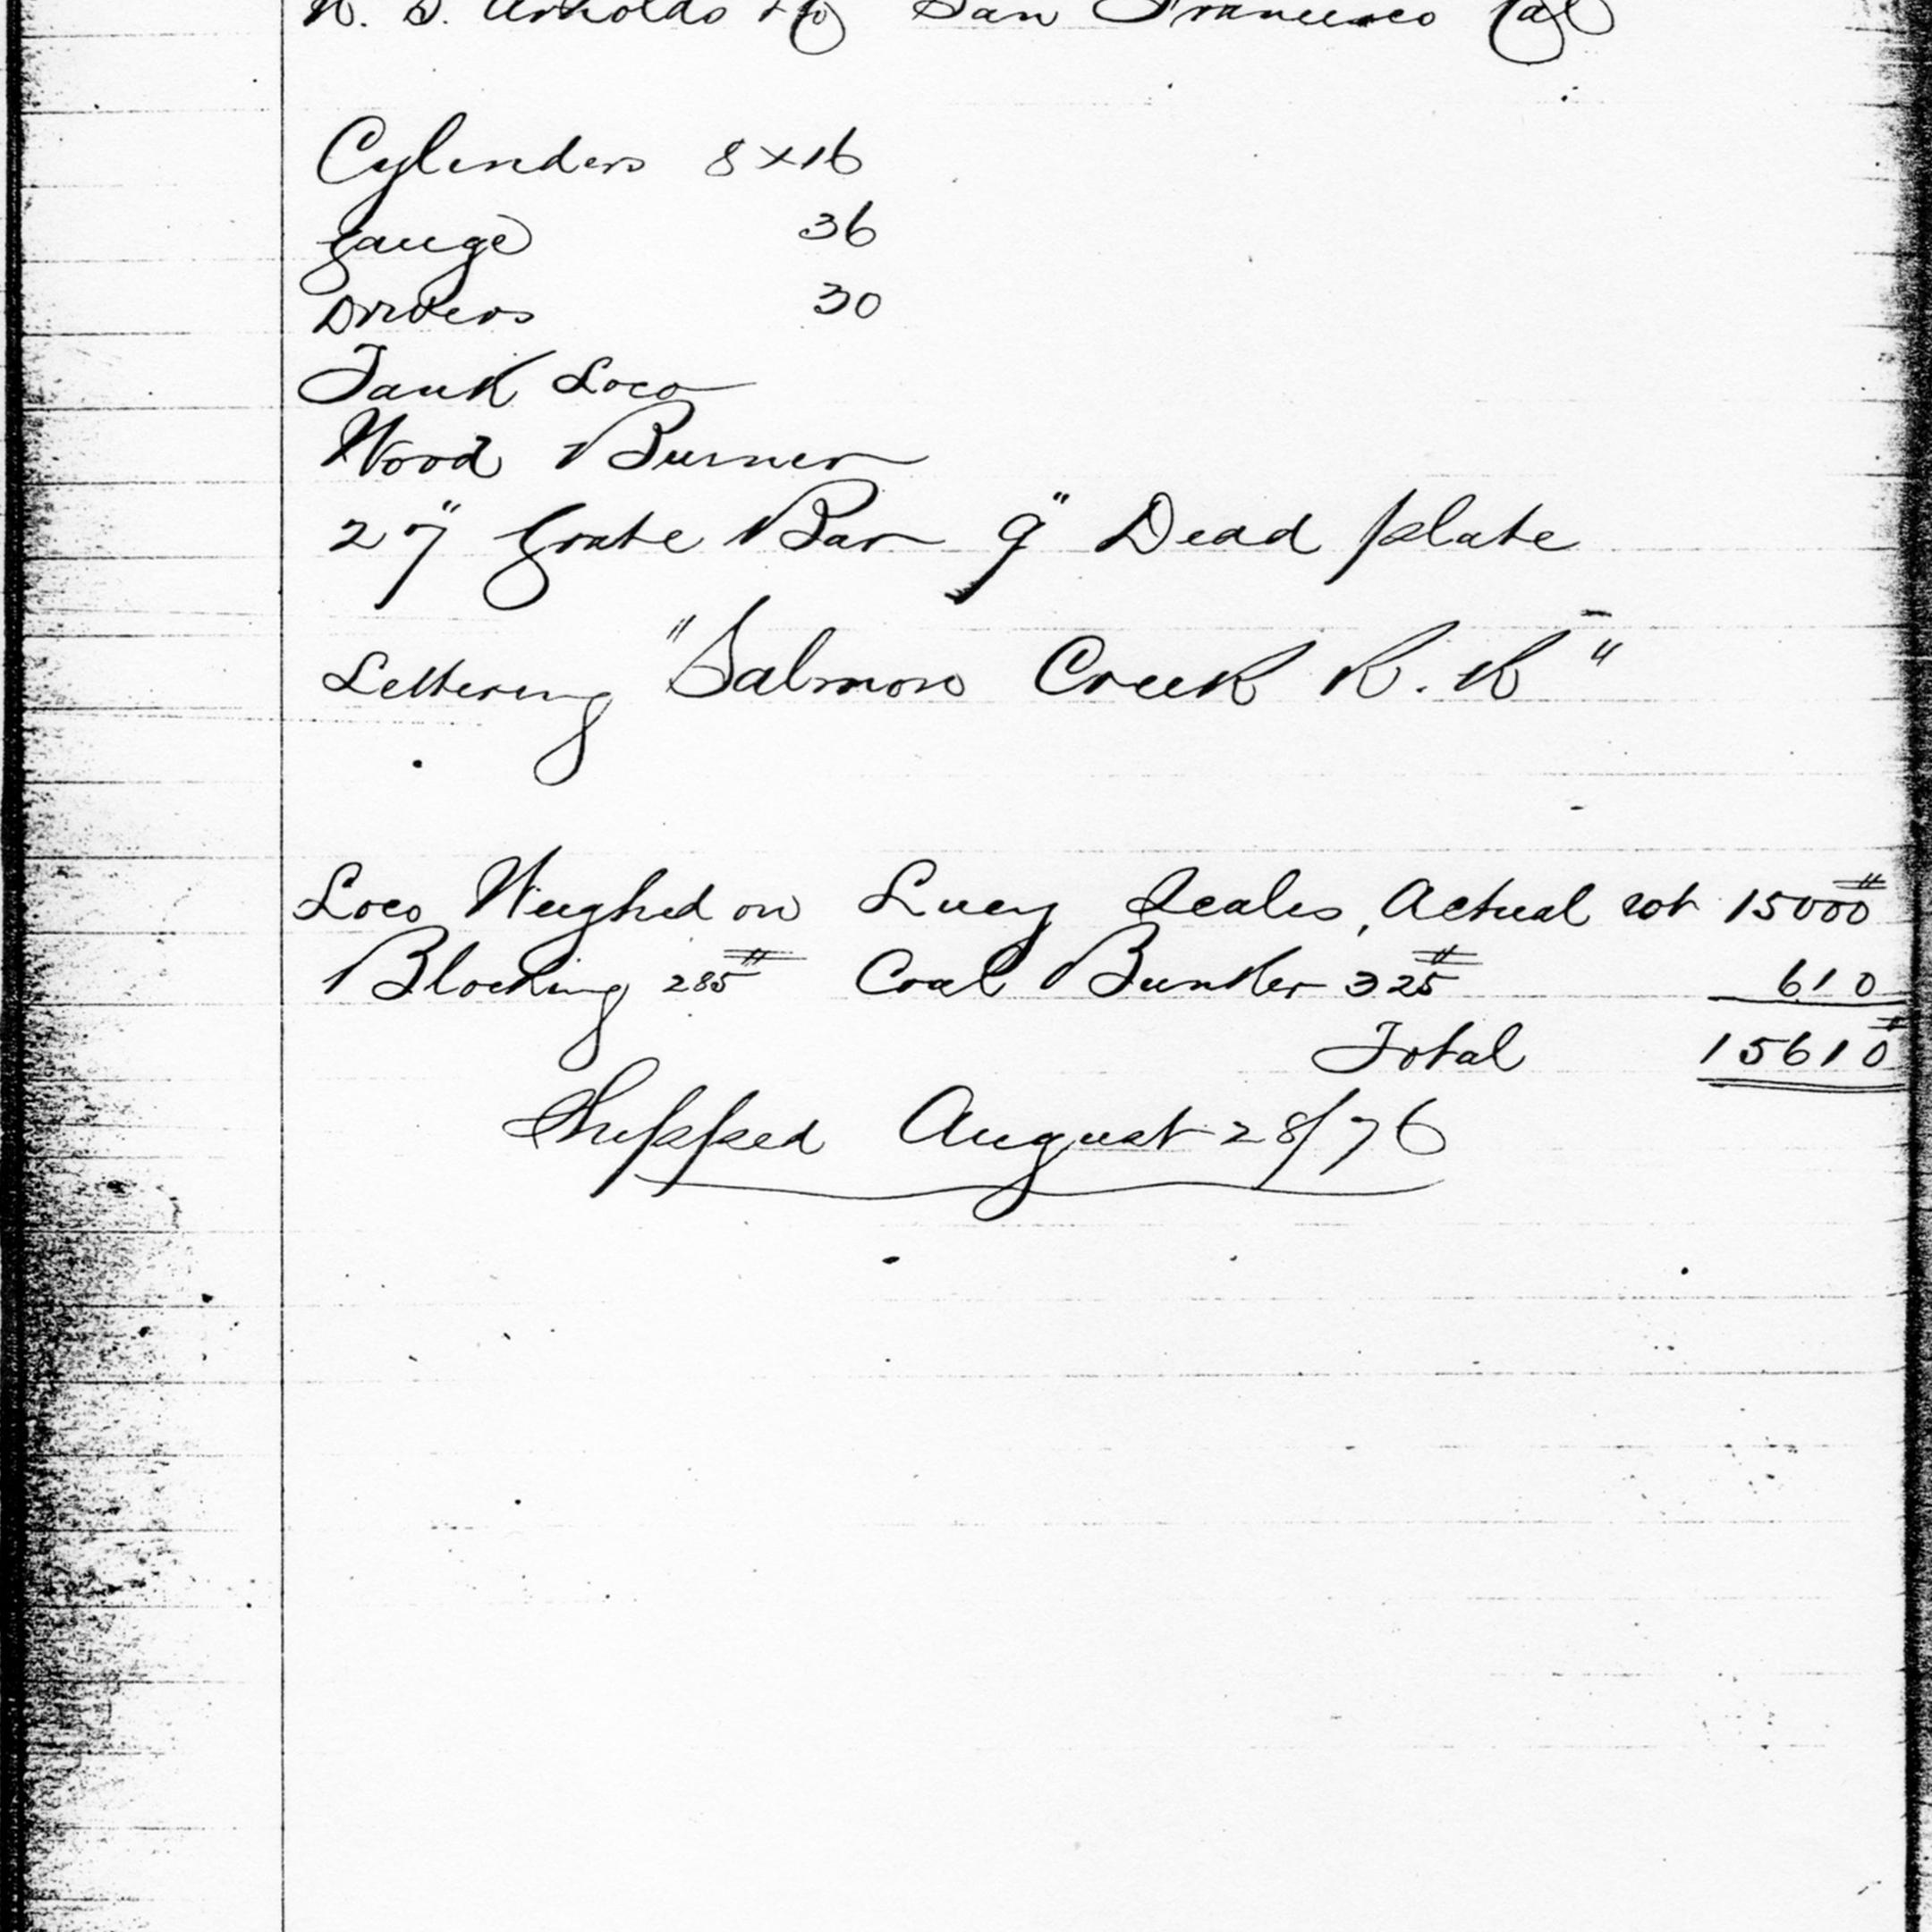 San Francisco Cal
Cylinders 8 x 16
Gauge 36
Drivers 30
Tank Loco
Wood Burner
27" Grate Bar 9" Dead plate
Lettering "Salmon Creek R. R"
Loco Weighed on Lucy Scales, Actual wt 15000#
Blocking 285# Coal Bunker 325# 610
Total 15610#
Shipped August 28/76